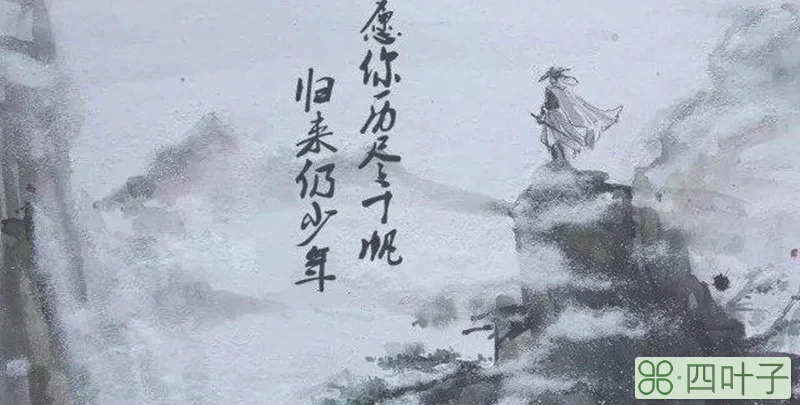 愿你历尽千帆
归来仍少年
⌘·四叶子